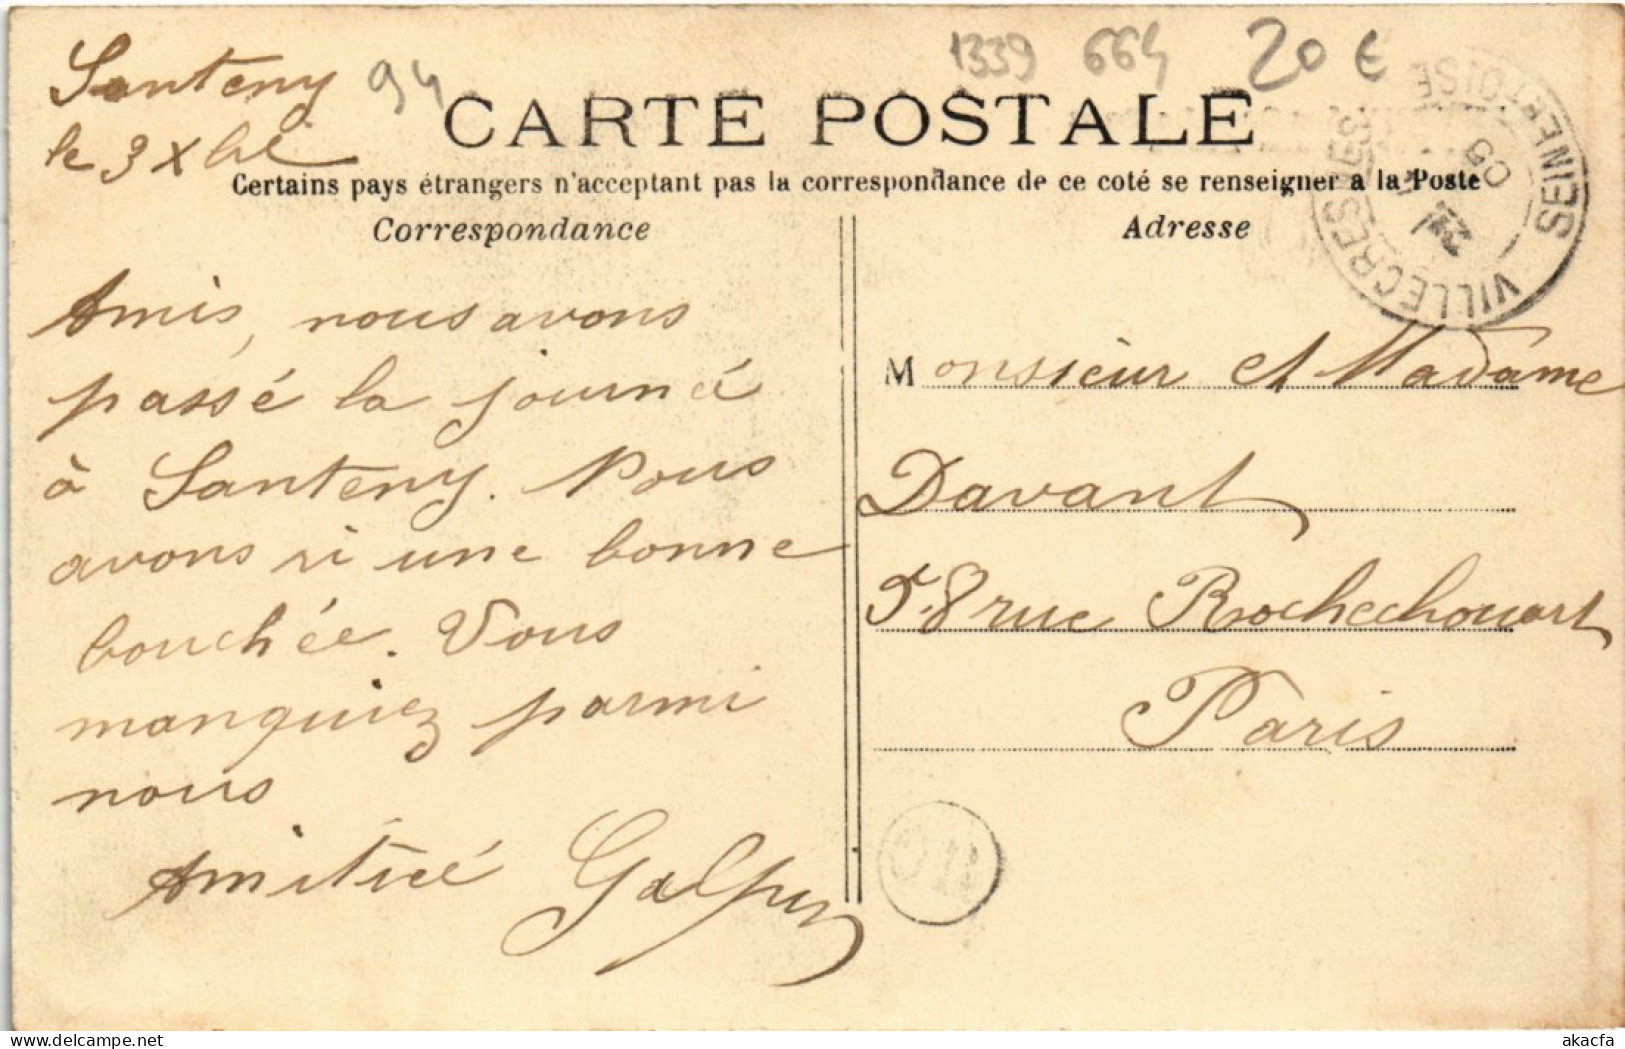 Santeny
le 3 Xbre
94
1339 664 20 €
CARTE POSTALE
Certains pays étrangers n'acceptant pas la correspondance de ce coté se renseigner a la Poste
Correspondance
Adresse
VILLECRESNES
SEINE-ET-OISE
09
Amis, nous avons
passé la journé
à Santeny. Nous
avons ri une bonne
bouchée. Vous
manquiez parmi
nous
Amitié
Monsieur et Madame
Davant
58 rue Rochechouart
Paris
akacfa